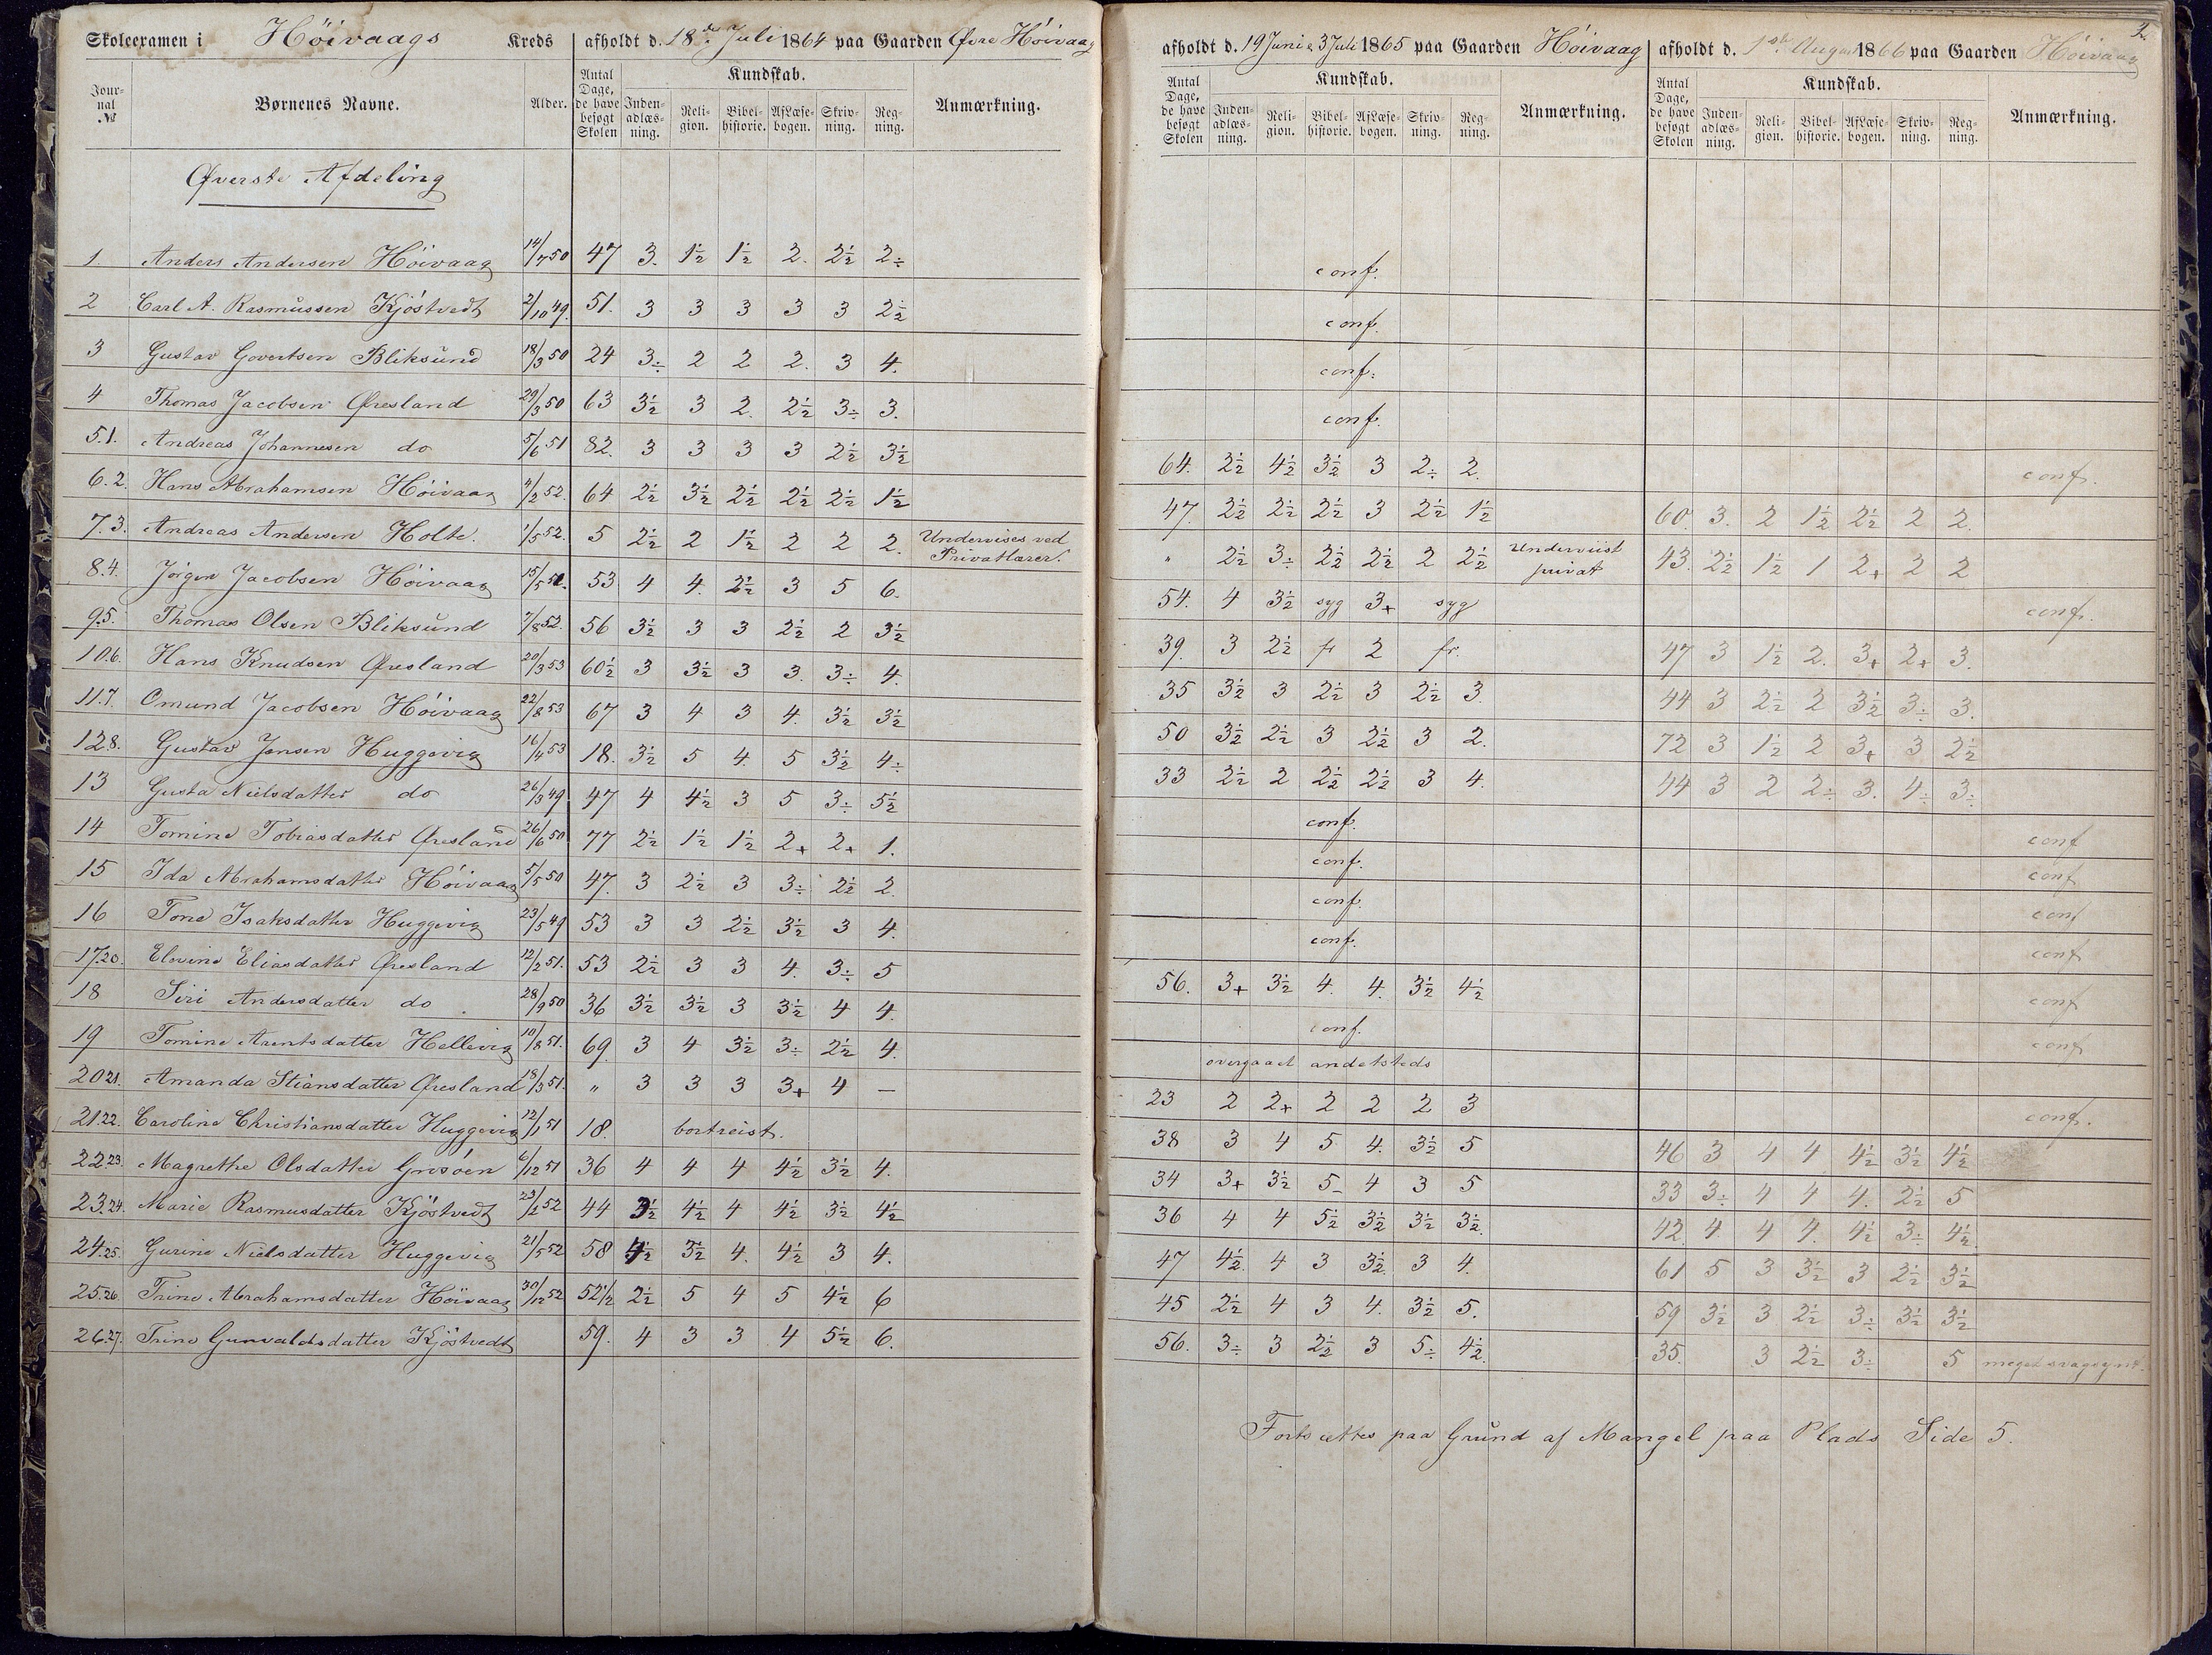 Skoleexamen i Höivaags Kreds afholdt d. 18de Juli 1864 paa Gaarden Øvre Höivaag
Jour-nal № Børnenes Navne. Alder. Antal Dage, de have besøgt Skolen Kundskab. Inden-adlæs-ning. Reli-gion. Bibel-historie. Af Læse-bogen. Skriv-ning. Reg-ning. Anmærkning.
Øverste Afdeling
1. Anders Andersen Höivaag 14/7 50 47 3. 1½ 1½ 2. 2½ 2÷
2 Carl A. Rasmussen Kjöstvedt 2/10 49. 51. 3 3 3 3 3 2½
3 Gustav Govertsen Bliksund 18/3 50 24 3÷ 2 2 2. 3 4.
4 Thomas Jacobsen Øresland 29/3 50 63 3½ 3 2. 2½ 3÷ 3.
5.1. Andreas Johannesen do 5/6 51 82. 3 3 3 3 2½ 3½
6.2. Hans Abrahamsen Höivaag 4/2 52. 64 2½ 3½ 2½ 2½ 2½ 1½
7.3. Andreas Andersen Holte. 1/5 52. 5 2½ 2 1½ 2 2 2. Undervises ved Privatlærer.
8.4. Jörgen Jacobsen Höivaag 15/5 51. 53 4 4. 2½ 3 5 6.
9.5. Thomas Olsen Bliksund 7/8 52. 56 3½ 3 3 2½ 2 3½
10.6. Hans Knudsen Øresland 20/3 53 60½ 3 3½ 3 3. 3÷ 4.
11.7. Omund Jacobsen Höivaag 22/8 53 67 3 4 3 4. 3½ 3½
12.8. Gustav Jensen Huggevig 16/4 53 18. 3½ 5 4. 5 3½ 4÷
13 Gusta Nielsdatter do 26/3 49 47 4 4½ 3 5 3÷ 5½
14 Tomine Tobiasdatter Øresland 26/6 50 77 2½ 1½ 1½ 2+ 2+ 1.
15 Ida Abrahamsdatter Höivaag 5/5 50 47. 3 2½ 3 3÷ 2½ 2
16 Tone Isaksdatter Huggevig 23/5 49 53 3 3 2½ 3½ 3 4.
17.20. Elevine Eliasdatter Øresland 12/2 51. 53 2½ 3 3 4. 3÷ 5
18 Siri Andersdatter do 28/9 50 36 3½ 3½ 3 3½ 4 4.
19 Tomine Arentsdatter Hellevig 10/8 51. 69. 3 4 3½ 3÷ 2½ 4.
20.21. Amanda Stiansdatter Øresland 18/3 51. „ 3 3 3 3+ 4 —
21.22. Caroline Christiansdatter Huggevig 12/1 51 18. bortreist.
22.23. Magrethe Olsdatter Grisöen 6/12 51 36 4 4 4 4½ 3½ 4.
23.24. Marie Rasmusdatter Kjöstvedt 23/2 52 44 3½ 4½ 4 4½ 3½ 4½
24.25. Gurine Nielsdatter Huggevig 21/5 52 58 4½ 3½ 4. 4½ 3 4.
25.26. Trine Abrahamsdatter Höivaag 30/12 52 52½ 2½ 5 4 5 4½ 6
26.27. Trine Gunvaldsdatter Kjöstvedt 59. 4 3 3 4 5½ 6.
2.
afholdt d. 19 Juni & 3 Juli 1865 paa Gaarden Höivaag afholdt d. 1ste August 1866 paa Gaarden Höivaag
Antal Dage, de have besøgt Skolen Kundskab. Inden-adlæs-ning. Reli-gion. Bibel-historie. Af Læse-bogen. Skriv-ning. Reg-ning. Anmærkning. Antal Dage, de have besøgt Skolen Kundskab. Inden-adlæs-ning. Reli-gion. Bibel-historie. Af Læse-bogen. Skriv-ning. Reg-ning. Anmærkning.
conf.
conf.
conf.
conf.
64. 2½ 4½ 3½ 3 2÷ 2. conf.
47. 2½ 2½ 2½ 3 2½ 1½ 60. 3. 2 1½ 2½ 2 2.
„ 2½ 3÷ 2½ 2½ 2 2½ Underviist privat 43. 2½ 1½ 1 2+ 2 2
54. 4 3½ syg 3+ syg conf.
39. 3 2½ fr 2 fr. 47 3 1½ 2. 3+ 2+ 3.
35 3½ 3 2½ 3 2½ 3. 44 3 2½ 2 3½ 3÷ 3.
50 3½ 2½ 3 2½ 3 2. 72 3 1½ 2 3+ 3 2½
33 2½ 2 2½ 2½ 3 4. 44 3 2 2÷ 3. 4÷ 3÷
conf. conf
conf. conf
conf. conf
conf. conf
56. 3+ 3½ 4. 4. 3½ 4½ conf
conf. conf
overgaaet andetsteds
23 2 2+ 2 2 2 3 conf.
38 3 4 5 4. 3½ 5 46 3 4 4 4½ 3½ 4½
34 3+ 3½ 5- 4 3 5 33 3÷ 4 4 4. 2½ 5
36 4 4 5½ 3½ 3½ 3½ 42. 4. 4 4. 4½ 3÷ 4½
47 4½ 4 3 3½ 3 4. 61 5 3 3½ 3 2½ 3½
45 2½ 4 3 4. 3½ 5. 59 3½ 3 2½ 3÷ 3½ 3½
56. 3÷ 3 2½ 3 5÷ 4½ 35. 3 2½ 3÷ 5 meget svagsynt.
Fortsættes paa Grund af Mangel paa Plads Side 5.